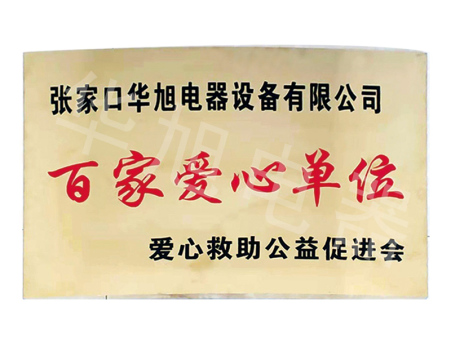 张家口华旭电器设备有限公司
百家爱心单位
爱心救助公益促进会
华旭电器